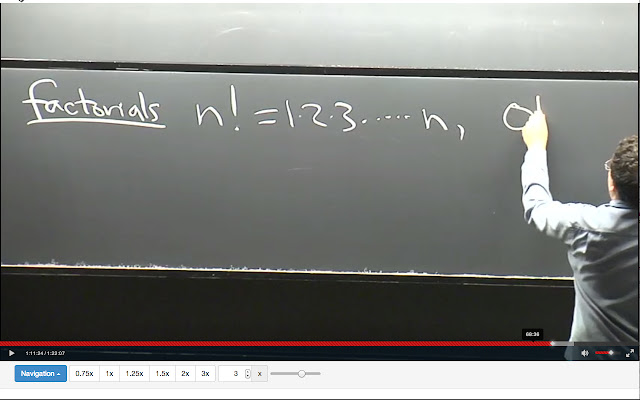 factorials n! = 1·2·3····· n, 0
68:36
1:11:24 / 1:22:07
Navigation 0.75x 1x 1.25x 1.5x 2x 3x 3 x